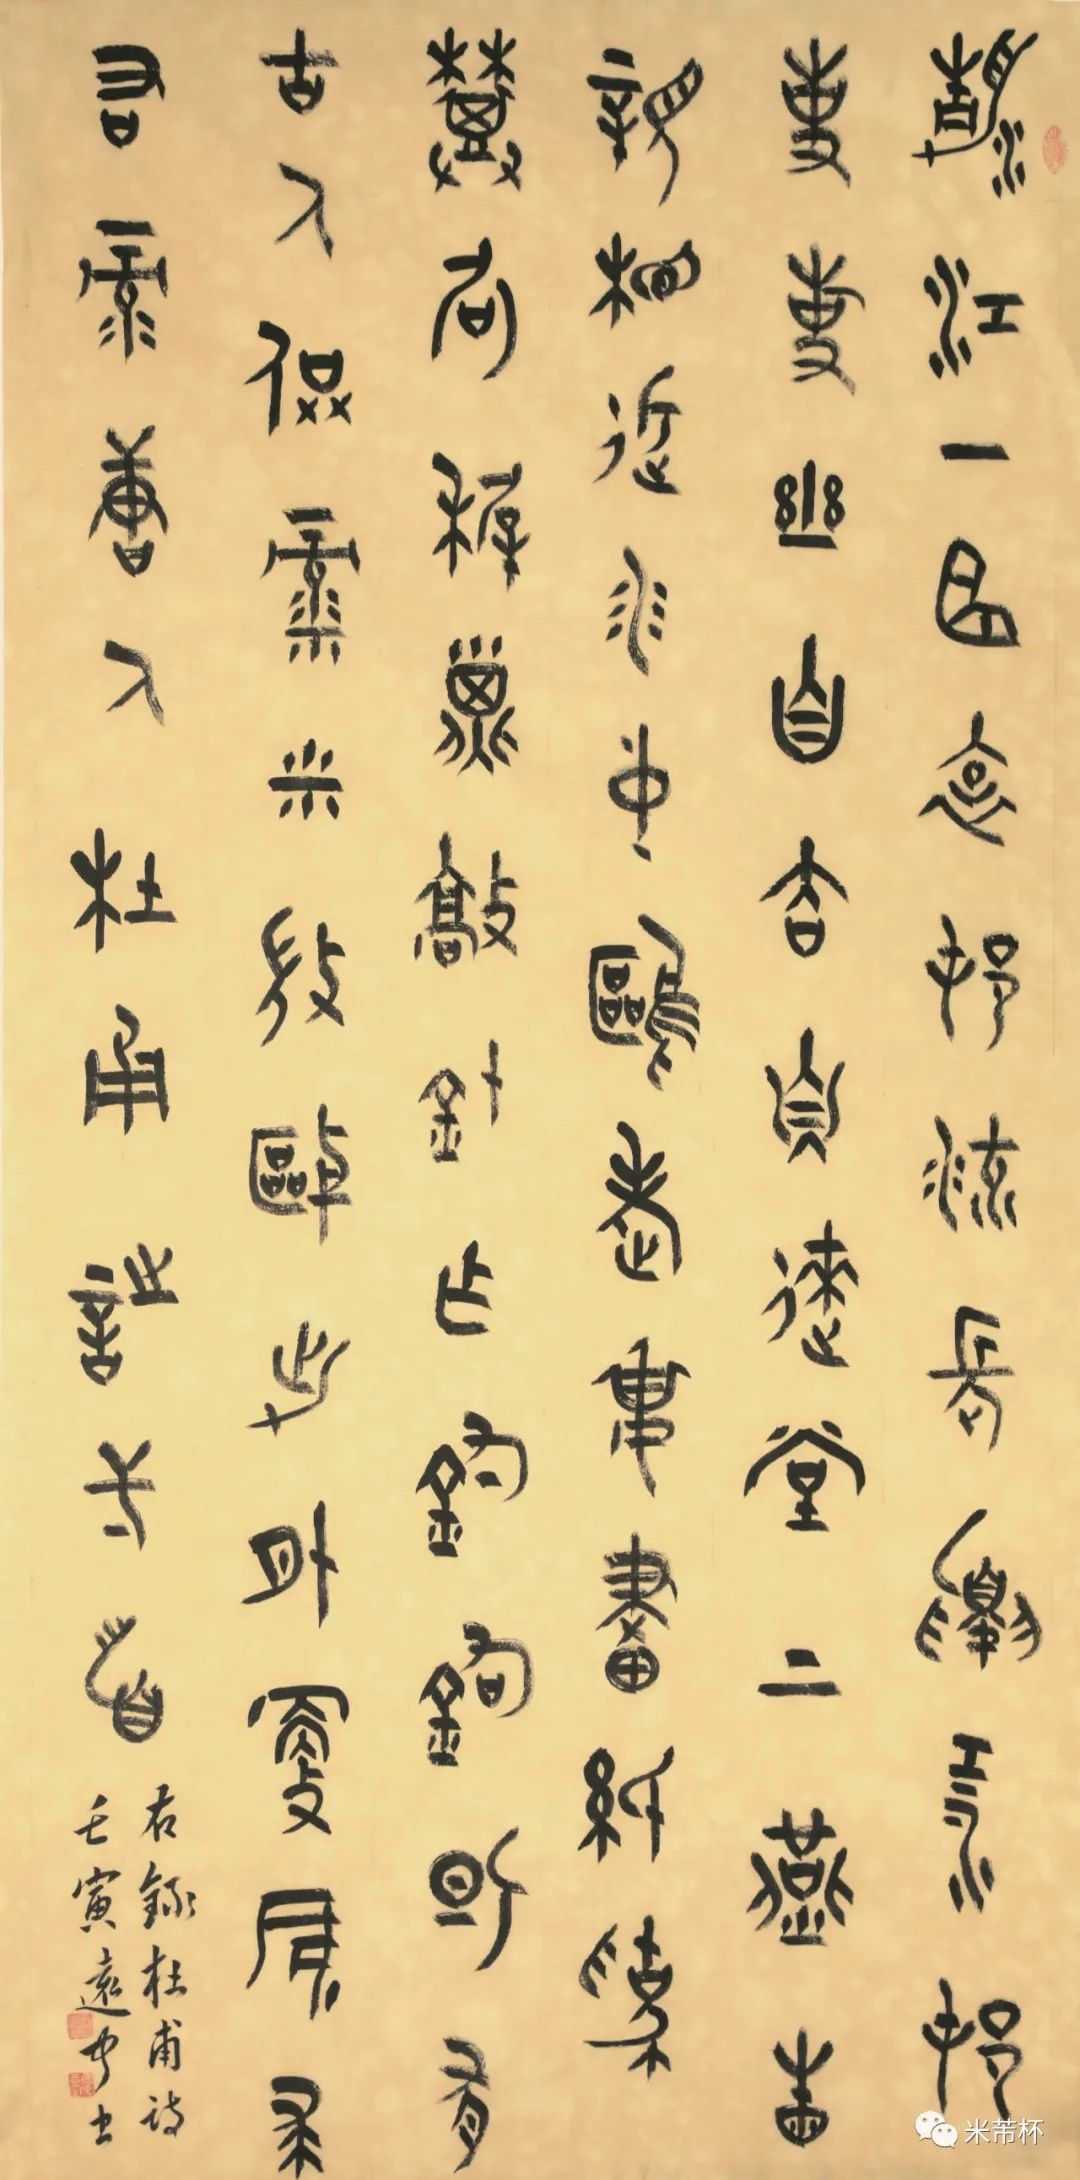 清江一曲抱村流長夏江村
事事幽自去自來堂上燕相
親相近水中鷗老妻畫紙為
棋局稚子敲針作釣鉤但有
古人供祿米微軀此外更何求
祿唐人杜甫詩首
右録杜甫诗
壬寅遠书
米芾杯